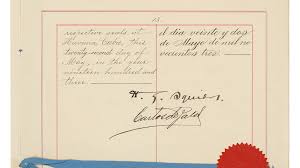 13.
respective seals at
Havana Cuba, this
twenty-second day of
May, in the year
nineteen hundred and
three.
el dia veinte y dos
de Mayo de mil no-
vecientos tres.
H. G. Squiers.
Carlos de Zaldo